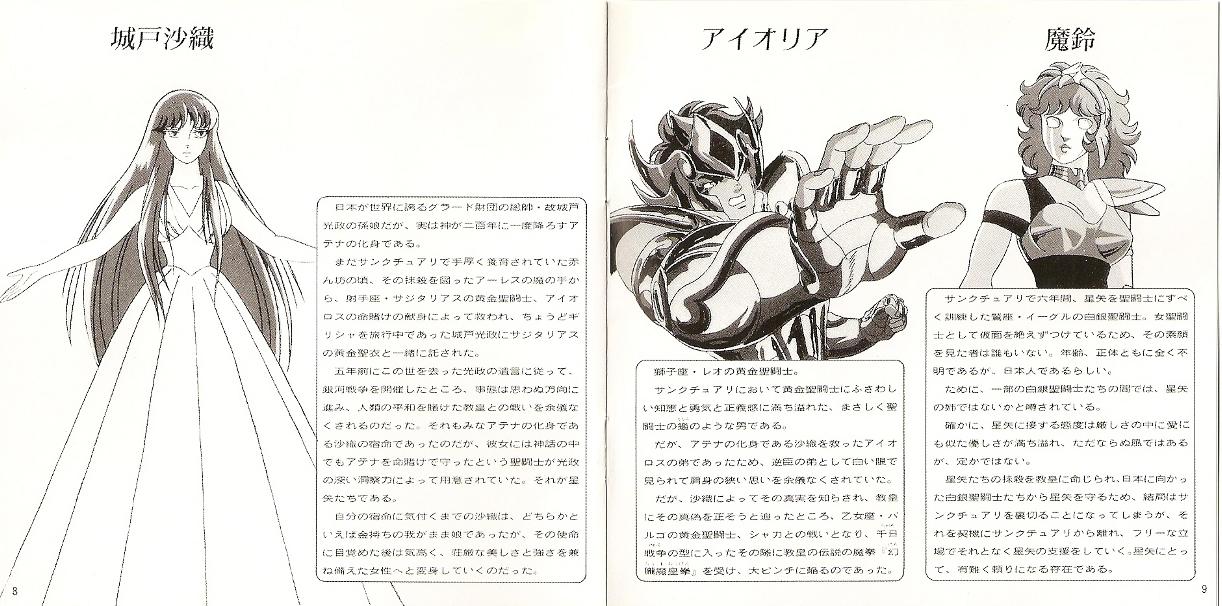 城戸沙織
日本が世界に誇るグラード財団の総帥・故城戸
光政の孫娘だが、実は神が二百年に一度降ろすア
テナの化身である。
まだサンクチュアリで手厚く養育されていた赤
ん坊の頃、その抹殺を図ったアーレスの魔の手か
ら、射手座・サジタリアスの黄金聖闘士、アイオ
ロスの命賭けの献身によって救われ、ちょうどギ
リシャを旅行中であった城戸光政にサジタリアス
の黄金聖衣と一緒に託された。
五年前にこの世を去った光政の遺言に従って、
銀河戦争を開催したところ、事態は思わぬ方向に
進み、人類の平和を賭けた教皇との戦いを余儀な
くされるのだった。それもみなアテナの化身であ
る沙織の宿命であったのだが、彼女には神話の中
でもアテナを命賭けで守ったという聖闘士が光政
の深い洞察力によって用意されていた。それが星
矢たちである。
自分の宿命に気付くまでの沙織は、どちらかと
いえば金持ちの我がまま娘であったが、その使命
に目覚めた後は気高く、荘厳な美しさと強さを兼
ね備えた女性へと変身していくのだった。
8
アイオリア
獅子座・レオの黄金聖闘士。
サンクチュアリにおいて黄金聖闘士にふさわし
い知恵と勇気と正義感に満ち溢れた、まさしく聖
闘士の鑑のような男である。
だが、アテナの化身である沙織を救ったアイオ
ロスの弟であったため、逆臣の弟として白い眼で
見られて肩身の狭い思いを余儀なくされていた。
だが、沙織によってその真実を知らされ、教皇
にその真偽を正そうと迫ったところ、乙女座・バ
ルゴの黄金聖闘士、シャカとの戦いとなり、千日
戦争の型に入ったその隙に教皇の伝説の魔拳『幻
朧魔皇拳』を受け、大ピンチに陥るのであった。
魔鈴
サンクチュアリで六年間、星矢を聖闘士にすべ
く訓練した鷲座・イーグルの白銀聖闘士。女聖闘
士として仮面を絶えずつけているため、その素顔
を見た者は誰もいない。年齢、正体ともに全く不
明であるが、日本人であるらしい。
ために、一部の白銀聖闘士たちの間では、星矢
の姉ではないかと噂されている。
確かに、星矢に接する態度は厳しさの中に愛に
も似た優しさが満ち溢れ、ただならぬ風ではある
が、定かではない。
星矢たちの抹殺を教皇に命じられ、日本に向かっ
た白銀聖闘士たちから星矢を守るため、結局はサ
ンクチュアリを裏切ることになってしまうが、そ
れを契機にサンクチュアリから離れ、フリーな立
場でそれとなく星矢の支援をしていく。星矢にとっ
て、有難く頼りになる存在である。
9